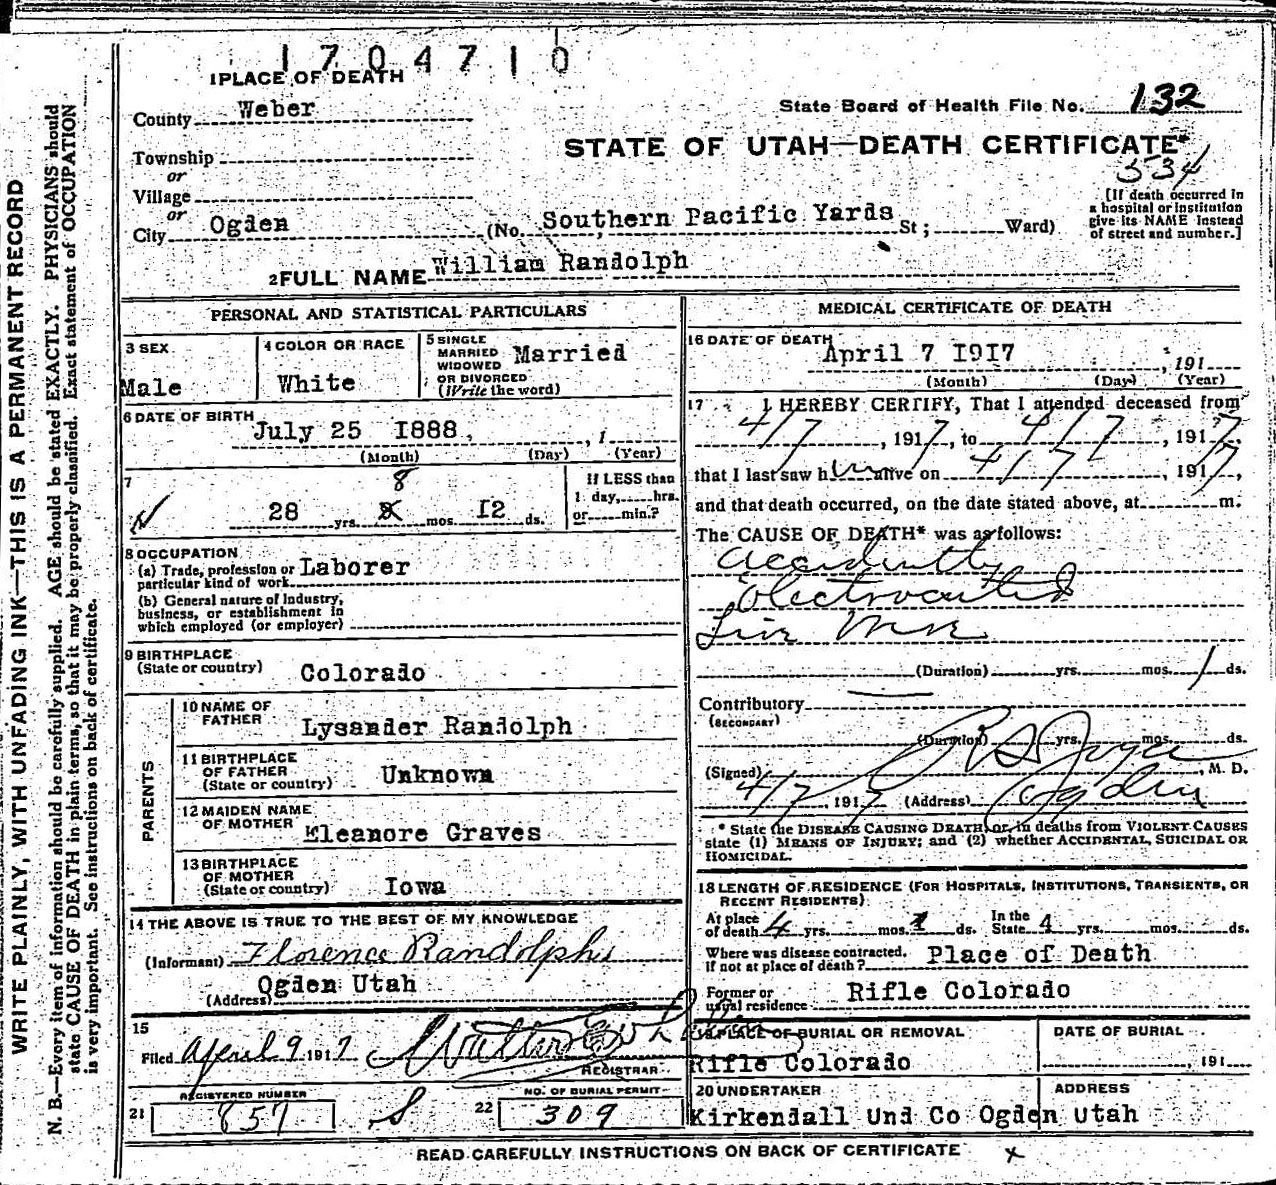 1704710
1 PLACE OF DEATH
County Weber
State Board of Health File No. 132
STATE OF UTAH—DEATH CERTIFICATE
534
Township
or
Village
or
City Ogden (No. Southern Pacific Yards St; Ward)
[If death occurred in
a hospital or institution
give its NAME instead
of street and number.]
2 FULL NAME William Randolph
PERSONAL AND STATISTICAL PARTICULARS
3 SEX
Male
4 COLOR OR RACE
White
5 SINGLE
MARRIED
WIDOWED
OR DIVORCED
(Write the word)
Married
6 DATE OF BIRTH
July 25 1888, , 1
(Month) (Day) (Year)
7
28 yrs. 8 mos. 12 ds.
If LESS than
1 day, hrs.
or min.?
8 OCCUPATION
(a) Trade, profession or
particular kind of work Laborer
(b) General nature of industry,
business, or establishment in
which employed (or employer)
9 BIRTHPLACE
(State or country) Colorado
PARENTS
10 NAME OF
FATHER Lysander Randolph
11 BIRTHPLACE
OF FATHER
(State or country) Unknown
12 MAIDEN NAME
OF MOTHER Eleanore Graves
13 BIRTHPLACE
OF MOTHER
(State or country) Iowa
14 THE ABOVE IS TRUE TO THE BEST OF MY KNOWLEDGE
(Informant) Florence Randolph
(Address) Ogden Utah
15
Filed April 9 1917
REGISTRAR
REGISTERED NUMBER
21 857
NO. OF BURIAL PERMIT
22 309
MEDICAL CERTIFICATE OF DEATH
16 DATE OF DEATH
April 7 1917 , 191
(Month) (Day) (Year)
17 I HEREBY CERTIFY, That I attended deceased from
4/7, 1917, to 4/7, 1917,
that I last saw him alive on 4/7, 1917,
and that death occurred, on the date stated above, at m.
The CAUSE OF DEATH* was as follows:
Accidently
Electrocuted
Live Wire
(Duration) yrs. mos. 1 ds.
Contributory
(SECONDARY)
(Duration) yrs. mos. ds.
(Signed) , M. D.
4/7, 1917 (Address) Ogden
* State the DISEASE CAUSING DEATH, or, in deaths from VIOLENT CAUSES
state (1) MEANS OF INJURY; and (2) whether ACCIDENTAL, SUICIDAL OR
HOMICIDAL.
18 LENGTH OF RESIDENCE (FOR HOSPITALS, INSTITUTIONS, TRANSIENTS, OR
RECENT RESIDENTS)
At place
of death 4 yrs. mos. 1 ds.
In the
State 4 yrs. mos. ds.
Where was disease contracted,
if not at place of death? Place of Death
Former or
usual residence Rifle Colorado
19 PLACE OF BURIAL OR REMOVAL
Rifle Colorado
DATE OF BURIAL
, 191
20 UNDERTAKER
ADDRESS
Kirkendall Und Co Ogden Utah
READ CAREFULLY INSTRUCTIONS ON BACK OF CERTIFICATE
WRITE PLAINLY, WITH UNFADING INK—THIS IS A PERMANENT RECORD
N. B.—Every item of information should be carefully supplied. AGE should be stated EXACTLY. PHYSICIANS should
state CAUSE OF DEATH in plain terms, so that it may be properly classified. Exact statement of OCCUPATION
is very important. See instructions on back of certificate.